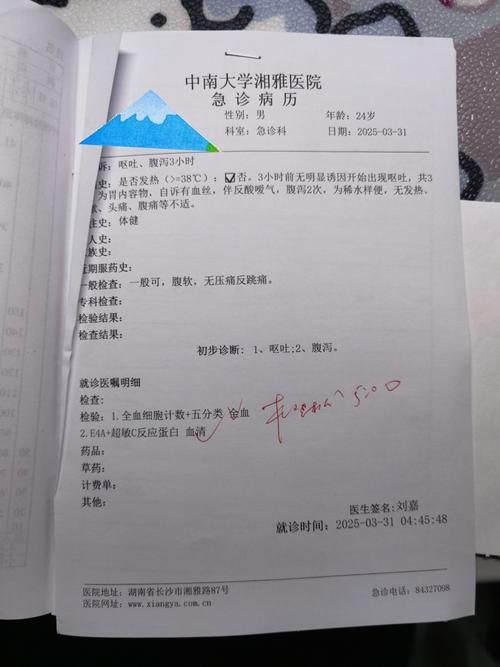 中南大学湘雅医院
急诊病历
性别：男 年龄：24岁
科室：急诊科 日期：2025-03-31
诉：呕吐、腹泻3小时
史：是否发热(>=38℃)：☑否。3小时前无明显诱因开始出现呕吐，共3
为胃内容物，自诉有血丝，伴反酸嗳气，腹泻2次，为稀水样便，无发热、
头痛、腹痛等不适。
往史：体健
人史：
族史：
近期服药史：
一般检查：一般可，腹软，无压痛反跳痛。
专科检查：
检验结果：
检查结果：
初步诊断：1、呕吐;2、腹泻。
就诊医嘱明细
检查：
检验：1.全血细胞计数+五分类 全血
2.E4A+超敏C反应蛋白 血清
药品：
草药：
计费单：
其他：
医生签名:刘嘉
就诊时间：2025-03-31 04:45:48
医院地址：湖南省长沙市湘雅路87号 急诊电话：84327098
医院网址：www.xiangya.com.cn